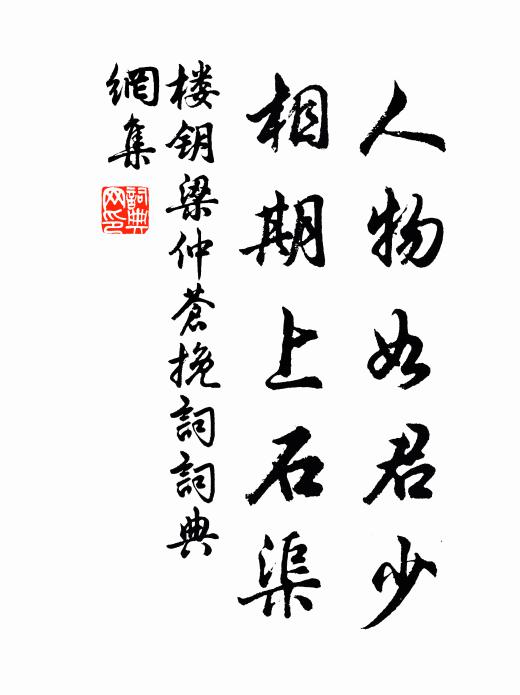 人物如君少
相期上石渠
楼钥梁仲蒼挽詞詞典
網集
詞典
网印